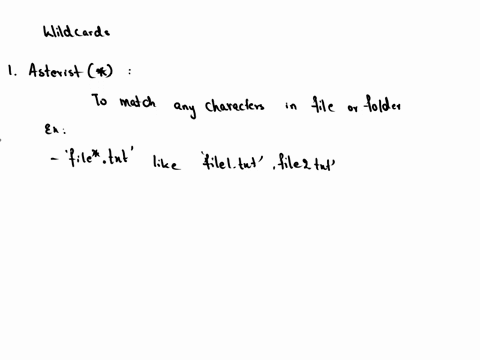 Wildcards
1. Asterist (*) :
To match any characters in file or folder
Ex:
- 'file*.txt' like 'file1.txt', file2txt'